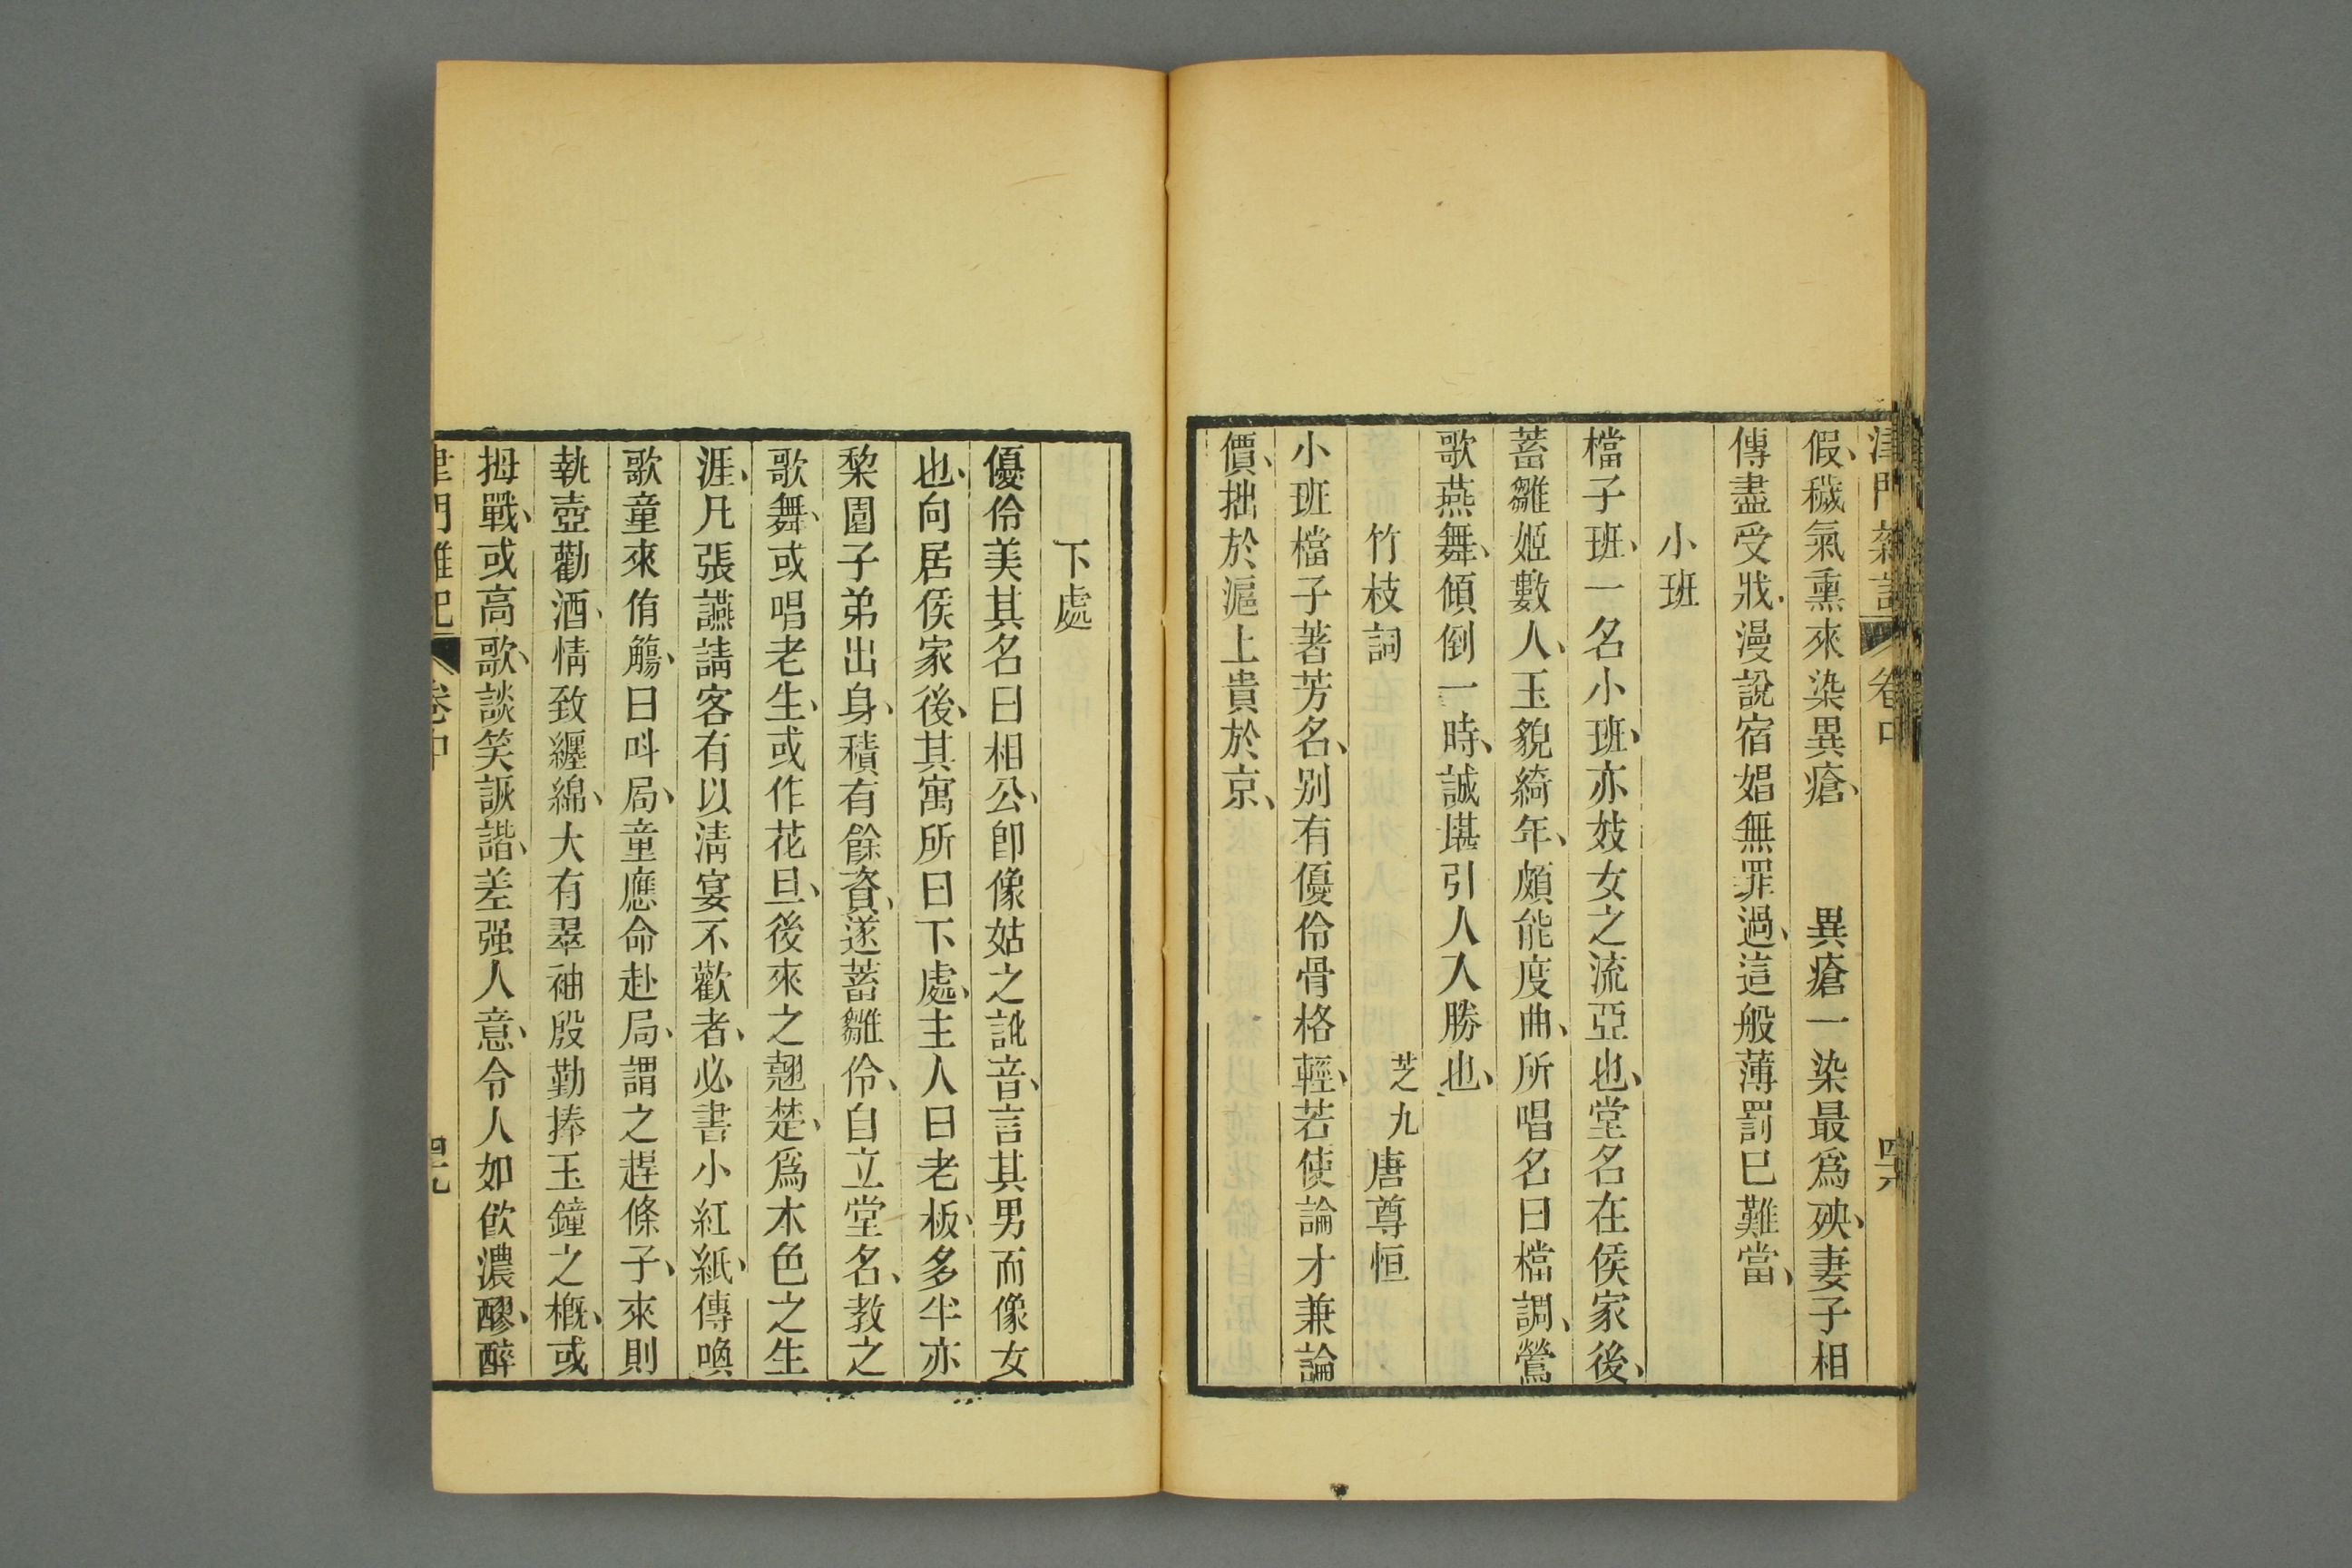 津門雜記 卷中
假、穢氣熏來染異瘡、 異瘡一染最爲殃、妻子相
傳盡受戕、漫說宿娼無罪過、這般薄罰已難當、
小班
檔子班、一名小班、亦妓女之流亞也、堂名在侯家後、
蓄雛姬數人、玉貌綺年、頗能度曲、所唱名曰檔調、鶯
歌燕舞、傾倒一時、誠堪引人入勝也、
竹枝詞 芝九唐尊恒
小班檔子著芳名、别有優伶骨格輕、若使論才兼論
價、拙於滬上貴於京、
下處
優伶美其名曰相公、卽像姑之訛音、言其男而像女
也、向居侯家後、其寓所曰下處、主人曰老板、多半亦
棃園子弟出身、積有餘資、遂蓄雛伶、自立堂名、教之
歌舞、或唱老生、或作花旦、後來之翹楚、爲木色之生
涯、凡張讌請客有以清宴不歡者、必書小紅紙、傳喚
歌童來侑觴、曰呌局、童應命赴局、謂之趕條子、來則
執壺勸酒、情致纏綿、大有翠袖殷勤捧玉鐘之槪、或
拇戰、或高歌、談笑詼諧、差强人意、令人如飮濃醪、醉
津門雜記 卷中 四九